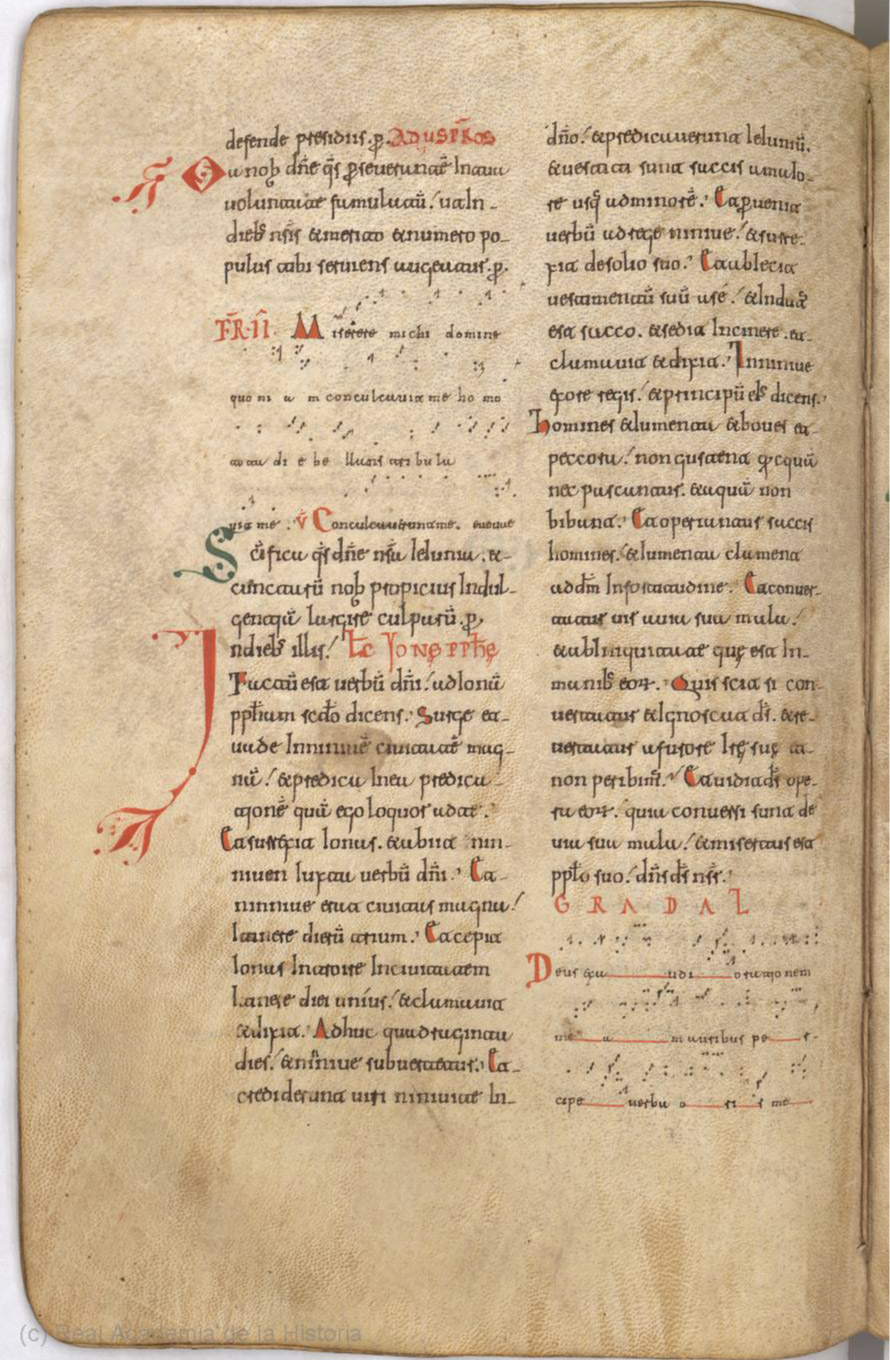 defende presidiis. p̄. AD VSP̄ROS
Da nob dn̄e q̄s p̄severantē In tua
voluntate famulatū. ut In
dieb nr̄is et merito et numero po
pulus tibi serviens augeatur. p̄.
FR̄. II Miserere michi domine
quoniam conculcavit me homo
tota die bellans tribula
vit me. V̄ Conculcaverunt me. euouae
Sc̄ifica q̄s dn̄e nr̄a Ieiunia. et
cunctarū nob propicius Indul
gentiā largire culparū. p̄.
In dieb illis. Lc̄ Ionę pphę̄
Factū est verbū dn̄i. ad Ionā
pph̄am scdo dicens. Surge et
vade In ninivē civitatē mag
nā. et predica In ea predica
tionē quā ego loquor ad te.
Et surrexit Ionas. et abiit nin
niven Iuxta verbū dn̄i. Et
ninnive erat civitas magna
Itinere dierū trium. Et cepit
Ionas Introire In civitatem
Itinere diei unius. et clamavit
et dixit. Adhuc quadraginta
dies. et ninive subvertetur. Et
crediderunt viri ninivite In
dn̄o. et predicaverunt Ieiuniū.
et vestiti sunt saccis a maio
re usq ad minorē. Et pervenit
verbū ad rege ninive. et surre
xit de solio suo. Et abiecit
vestimentū suū a sē. et Indut
est sacco. et sedit In cinere. et
clamavit et dixit. In ninive
ex ore regis. et principū eis dicens.
Homines et iumenta et boves et
peccora. non gustent qcquā
nec pascantur. et aquā non
bibant. Et operiantur saccis
homines. et iumenta clament
ad dm̄ In fortitudine. Et conver
tatur vir a via sua mala.
et ab Iniquitate quę est In
manib eor. Quis scit si con
vertatur et Ignoscat ds̄. et re
vertatur a furore Irę suę et
non peribim. Et vidit ds̄ ope
ra eor. quia conversi sunt de
via sua mala. et misertus est
pplo suo. dn̄s ds̄ nsr̄.
GRADAL
Deus exaudi orationem
meam auribus per
cipe verba oris mei